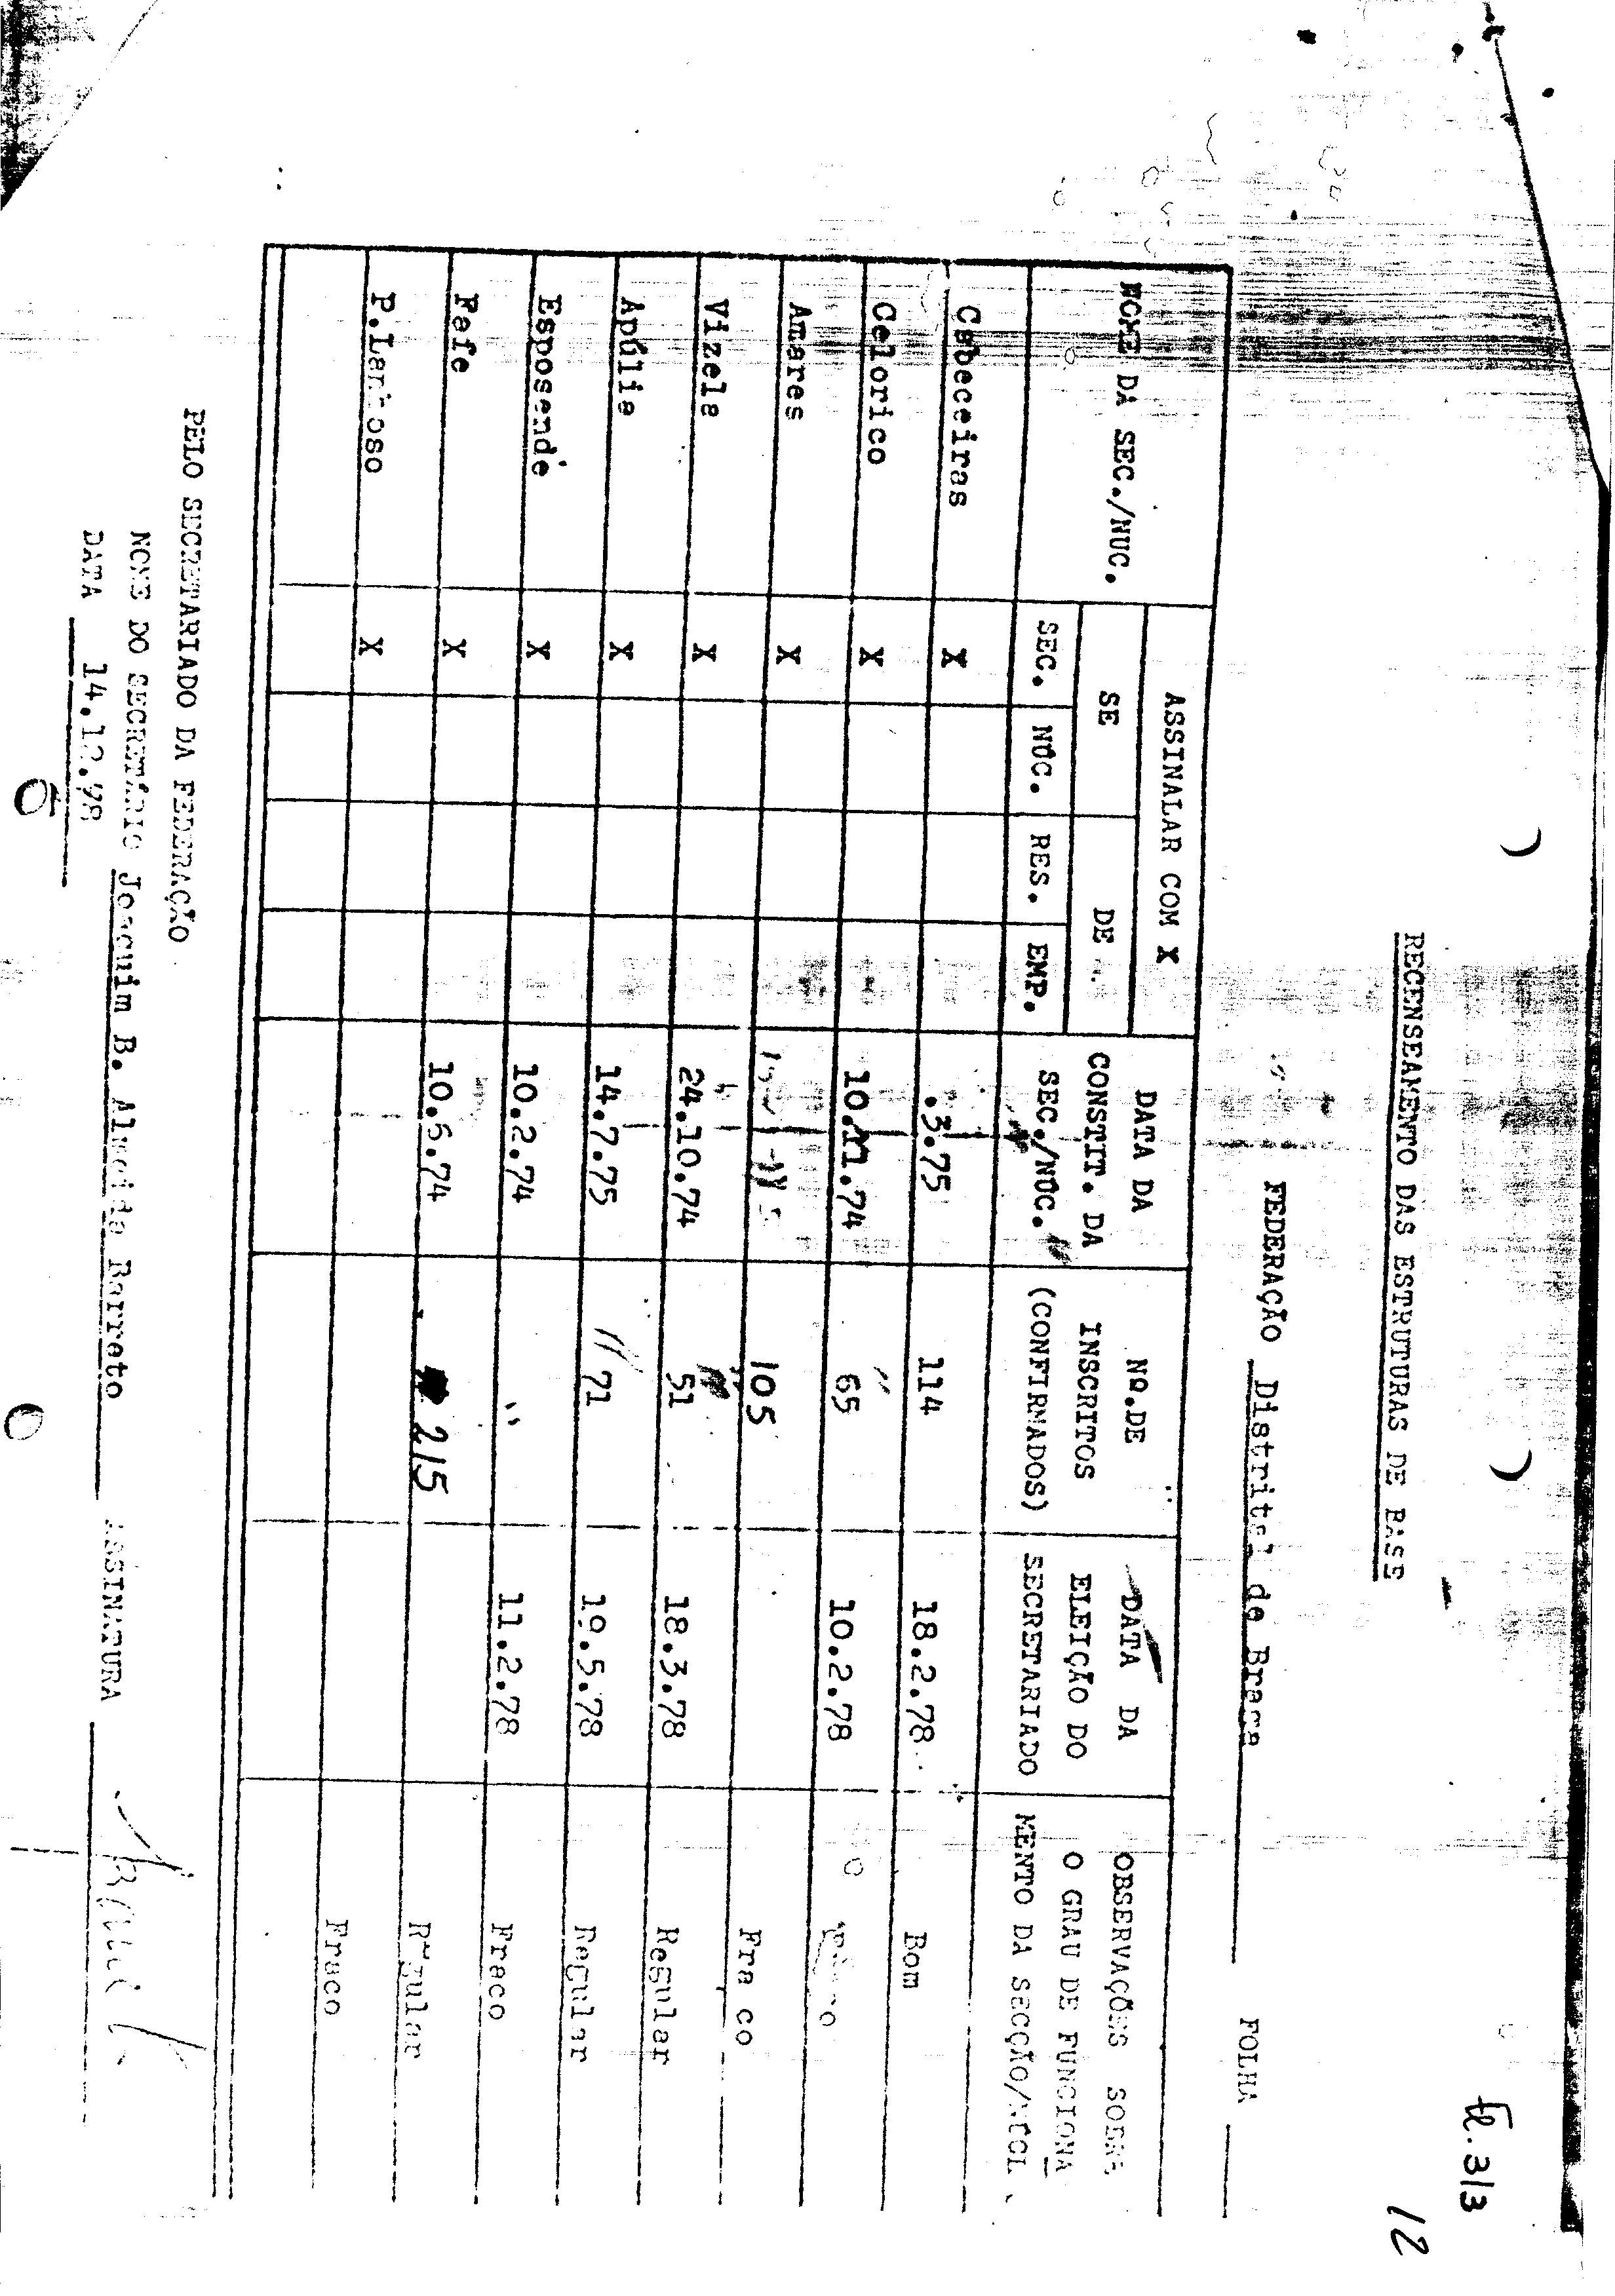 fl. 3/3
12
RECENSEAMENTO DAS ESTRUTURAS DE BASE
FEDERAÇÃO Distrital de Braga FOLHA
NOME DA SEC./NUC.
ASSINALAR COM X
SE DE
SEC. NÚC. RES. EMP.
DATA DA
CONSTIT. DA
SEC./NÚC.
Nº.DE
INSCRITOS
(CONFIRMADOS)
DATA DA
ELEIÇÃO DO
SECRETARIADO
OBSERVAÇÕES SOBRE
O GRAU DE FUNCIONA
MENTO DA SECÇÃO/NÚCL
Cabeceiras X .3.75 114 18.2.78 Bom
Celorico X 10.11.74 65 10.2.78
Amares X 105 Fra co
Vizela X 24.10.74 51 18.3.78 Regular
Apúlia X 14.7.75 71 19.5.78 Regular
Esposende X 10.2.74 " 11.2.78 Fraco
Fafe X 10.6.74 215 Regular
P.Lanhoso X Fraco
PELO SECRETARIADO DA FEDERAÇÃO
NOME DO SECRETÁRIO Joaquim B. Almeida Barreto ASSINATURA
DATA 14.12.78